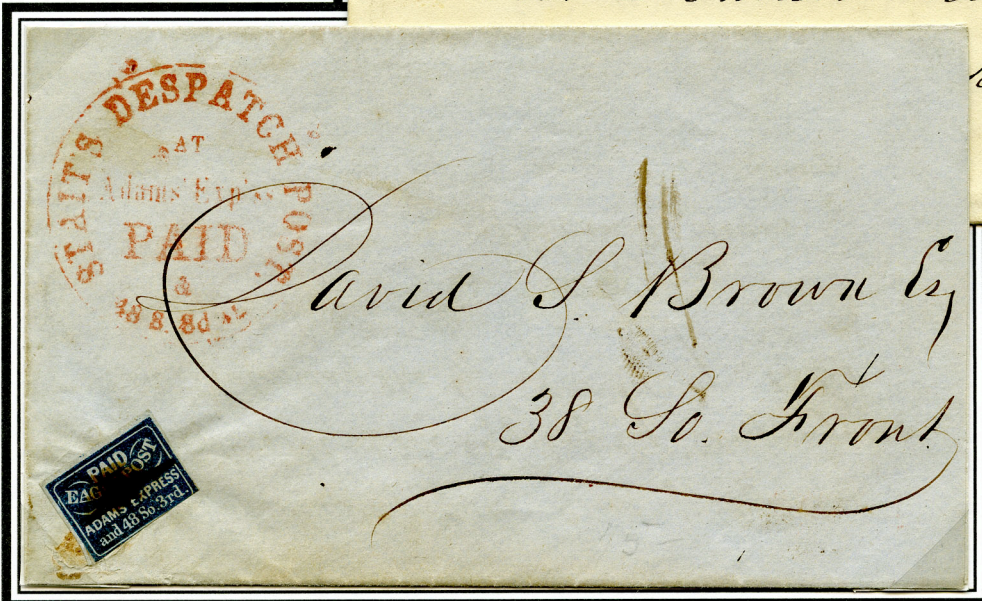 STAIT'S DESPATCH POST.
AT
Adams' Exp'ss
PAID
&
48 S. 3d St.
David S. Brown Esq
38 So. Front
PAID
EAG POST
ADAMS EXPRESS
and 48 So. 3rd.